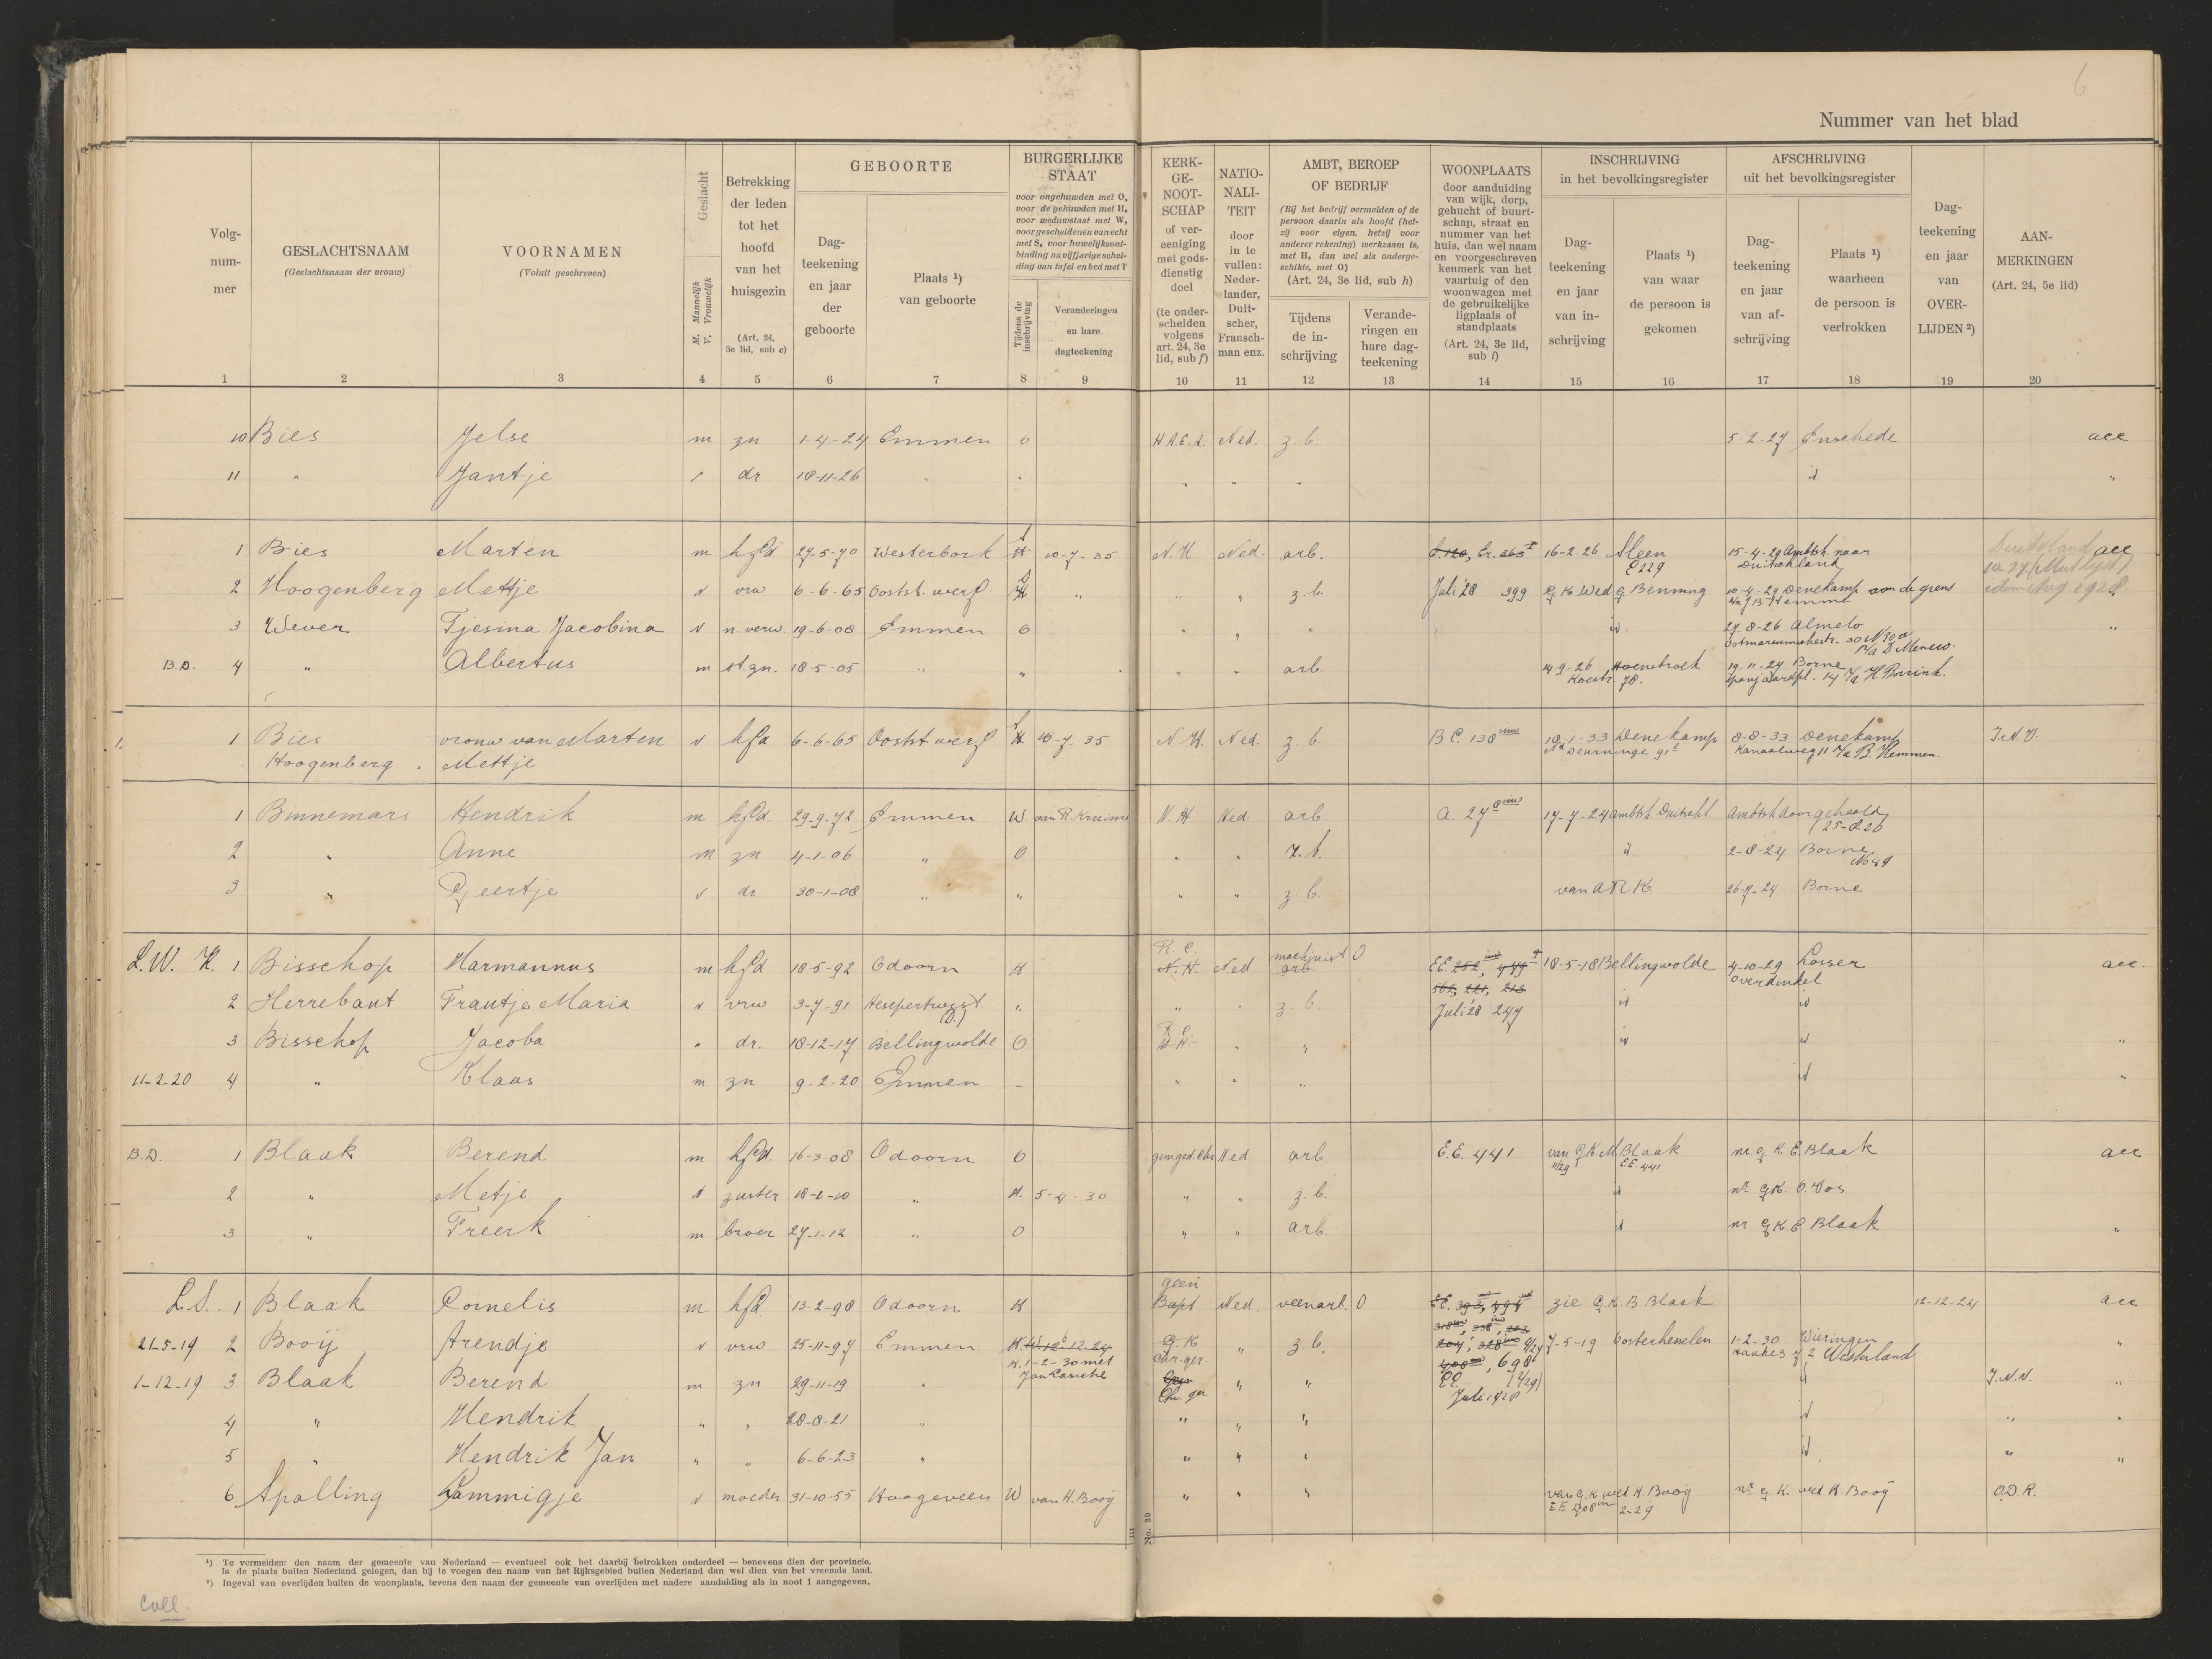 6
Nummer van het blad
Volg-
num-
mer
GESLACHTSNAAM
(Geslachtsnaam der vrouw)
VOORNAMEN
(Voluit geschreven)
Geslacht
M. Mannelijk
V. Vrouwelijk
Betrekking
der leden
tot het
hoofd
van het
huisgezin
(Art. 24,
3e lid, sub c)
GEBOORTE
Dag-
teekening
en jaar
der
geboorte
Plaats ¹)
van geboorte
BURGERLIJKE
STAAT
voor ongehuwden met O,
voor de gehuwden met H,
voor weduwstaat met W,
voor gescheidenen van echt
met S, voor huwelijksont-
binding na vijfjarige schei-
ding van tafel en bed met T
Tijdens de
inschrijving
Veranderingen
en hare
dagteekening
KERK-
GE-
NOOT-
SCHAP
of ver-
eeniging
met gods-
dienstig
doel
(te onder-
scheiden
volgens
art. 24, 3e
lid, sub f)
NATIO-
NALI-
TEIT
door
in te
vullen:
Neder-
lander,
Duit-
scher,
Fransch-
man enz.
AMBT, BEROEP
OF BEDRIJF
(Bij het bedrijf vermelden of de
persoon daarin als hoofd (het-
zij voor eigen, hetzij voor
anderer rekening) werkzaam is,
met H, dan wel als onderge-
schikte, met O)
(Art. 24, 3e lid, sub h)
Tijdens
de in-
schrijving
Verande-
ringen en
hare dag-
teekening
WOONPLAATS
door aanduiding
van wijk, dorp,
gehucht of buurt-
schap, straat en
nummer van het
huis, dan wel naam
en voorgeschreven
kenmerk van het
vaartuig of den
woonwagen met
de gebruikelijke
ligplaats of
standplaats
(Art. 24, 3e lid,
sub i)
INSCHRIJVING
in het bevolkingsregister
Dag-
teekening
en jaar
van in-
schrijving
Plaats ¹)
van waar
de persoon is
gekomen
AFSCHRIJVING
uit het bevolkingsregister
Dag-
teekening
en jaar
van af-
schrijving
Plaats ¹)
waarheen
de persoon is
vertrokken
Dag-
teekening
en jaar
van
OVER-
LIJDEN ²)
AAN-
MERKINGEN
(Art. 24, 5e lid)
1 2 3 4 5 6 7 8 9 10 11 12 13 14 15 16 17 18 19 20
10 Bies Jelse m zn 1-4-24 Emmen o H.A.E.A. Ned. z.b. 5-2-27 Enschede acc
11 " Jantje dr 18-11-26 " " " " " id "
1 Bies Marten m hfd 27-5-70 Westerbork H 10-7-35 N.H. Ned. arb. 16-2-26 Sleen 15-4-29 Ambtsh. naar Duitschland acc
E229 Duitschland
2 Hoogenberg Mettje v vrw 6-6-65 Oostst. werf H " " " z.b. Juli 28 399 G K Wed G Benning 10-4-29 Denekamp aan de grens
3 Wever Tjesina Jacobina v n. verw. 19-6-08 Emmen O " " " id. 27-8-26 Almelo "
B.D. 4 " Albertus m st. zn. 18-5-05 " " " " arb. 14-9-26 Hoensbroek 19-11-27 Borne
Koestr. 78. Spanjaardpl. 14 H. Borrink.
1 Bies vrouw van Marten v hfd 6-6-65 Oostst werf H 10-7-35 N.H. Ned. z.b. B.C. 138 18-1-33 Denekamp 8-8-33 Denekamp J.N.V.
Hoogenberg. Mettje Deurninge 91 Kanaalweg 11 B. Hemmen.
1 Binnemars Hendrik m hfd. 29-9-72 Emmen W van R. Kruims N.H. Ned. arb. A. 27 17-7-24 ambtsh Duitschl. Ambtsh doorgehaald
25-8-26
2 " Anne m zn 4-1-06 " O " " z.b. id 2-8-24 Borne
No 49
3 " Geertje v dr 30-1-08 " " " " z.b. van A R K 26-7-24 Borne
L.W. K. 1 Bisschop Harmannus m hfd 18-5-92 Odoorn H R.C. N.H. Ned machinist arb. O EE. 252, 449 18-5-18 Bellingwolde 4-10-29 Losser acc.
562, 221, 212 Overdinkel
2 Herrebant Frantje Maria v vrw 3-7-91 Hesepertwist (D.) " " " z.b. Juli 28 247 id id
3 Bisschop Jacoba " dr. 18-12-17 Bellingwolde O R.C. N.H. " " id id "
11-2-20 4 " Klaas m zn 9-2-20 Emmen " " " " id "
B.D. 1 Blaak Berend m hfd. 16-3-08 Odoorn O Ned arb E.E. 441 van G.K. M. Blaak nr. G. K. E. Blaak acc
EE 441
2 " Metje v zuster 18-1-10 " H. 5-4-30 " " z.b. id nr GK. O. Vos
3 " Freerk m broer 27-1-12 " O " " arb. id nr GK E Blaak "
L.S. 1 Blaak Cornelis m hfd. 13-2-98 Odoorn H geen Bapt Ned. veenarb. O EE. 393, 494 zie G.K. B Blaak 12-12-24 acc
318, 238, 203
21-5-19 2 Booij Arendje v vrw 25-11-97 Emmen H W. 12-12-24 G.K. " z.b. 204, 328 7-5-19 Oosterhesselen 1-2-30 Wieringen "
H. 1-2-30 met Jan Lasche Chr. ger. 408, 698 Haukes z 2 Westerland
1-12-19 3 Blaak Berend m zn 29-11-19 " Geen Chr. ger " " EE (2/29) id J.N.N. "
Juli 1928
4 " Hendrik " " 28-8-21 " " " " id " "
5 " Hendrik Jan " " 6-6-23 " " " " id " "
6 Spalling Lammigje v moeder 31-10-55 Hoogeveen W van H. Booij " " " van G.K. wed H. Booij nr G. K. wed H. Booij O.D.R.
EE 208 2-29
III
No. 39
¹) Te vermelden: den naam der gemeente van Nederland — eventueel ook het daarbij betrokken onderdeel — benevens dien der provincie.
Is de plaats buiten Nederland gelegen, dan bij te voegen den naam van het Rijksgebied buiten Nederland dan wel dien van het vreemde land.
²) Ingeval van overlijden buiten de woonplaats, tevens den naam der gemeente van overlijden met nadere aanduiding als in noot 1 aangegeven.
Coll.